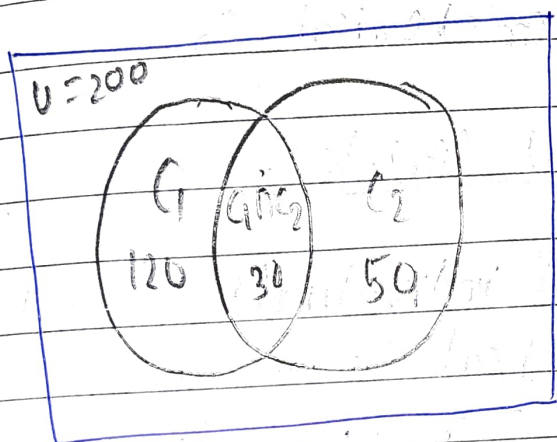 U=200
C₁ C₁∩C₂ C₂
120 30 50